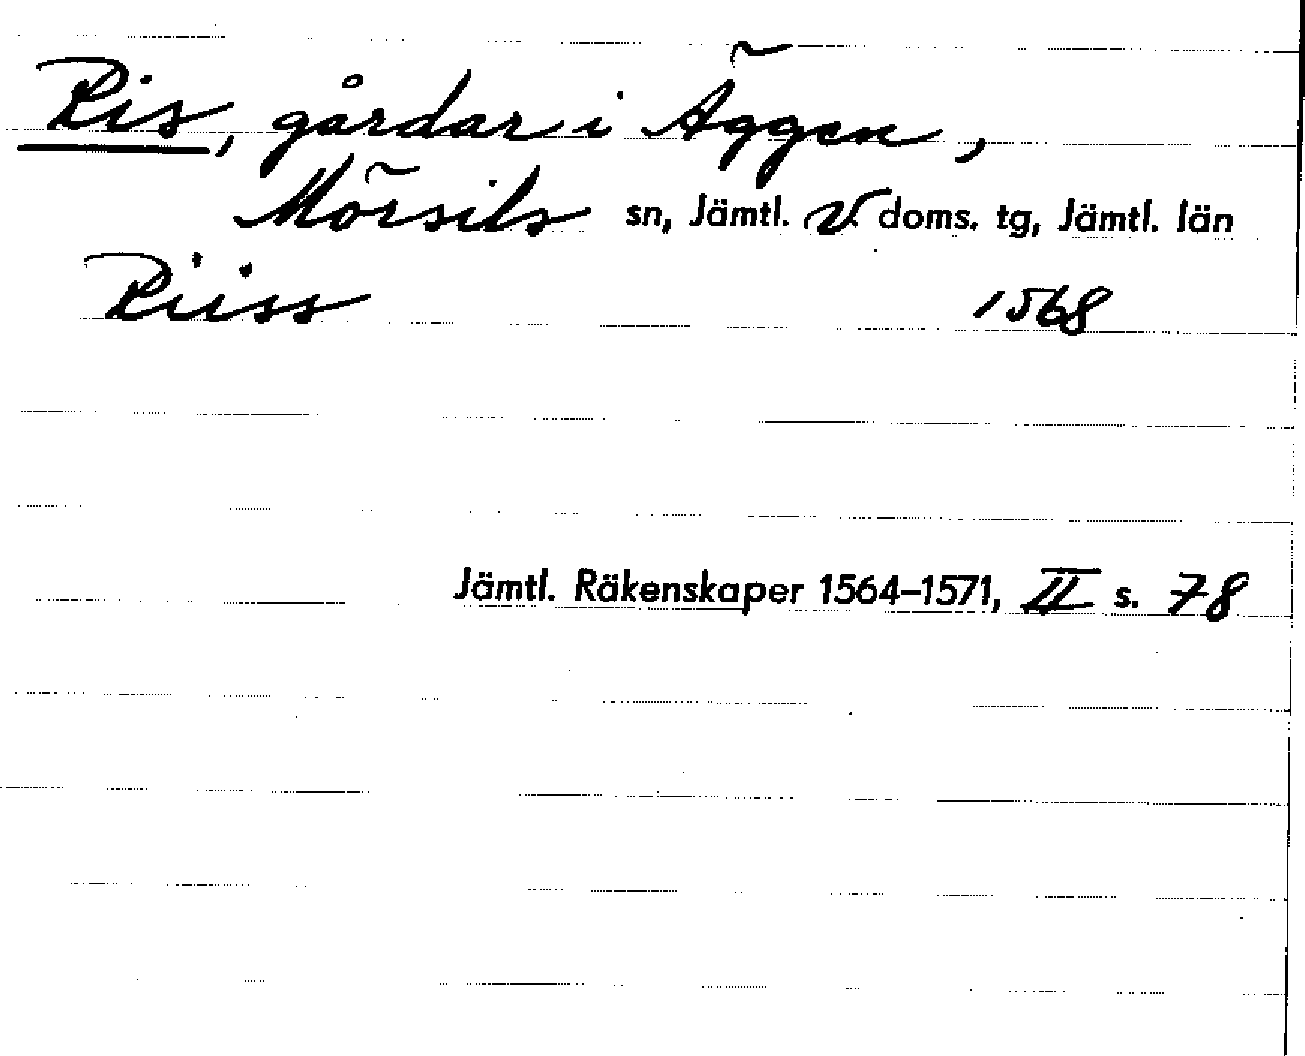 Ris, gårdar i Äggen,
Mörsils sn, Jämtl. V. doms. tg, Jämtl. län
Riiss 1568
Jämtl. Räkenskaper 1564–1571, II s. 78